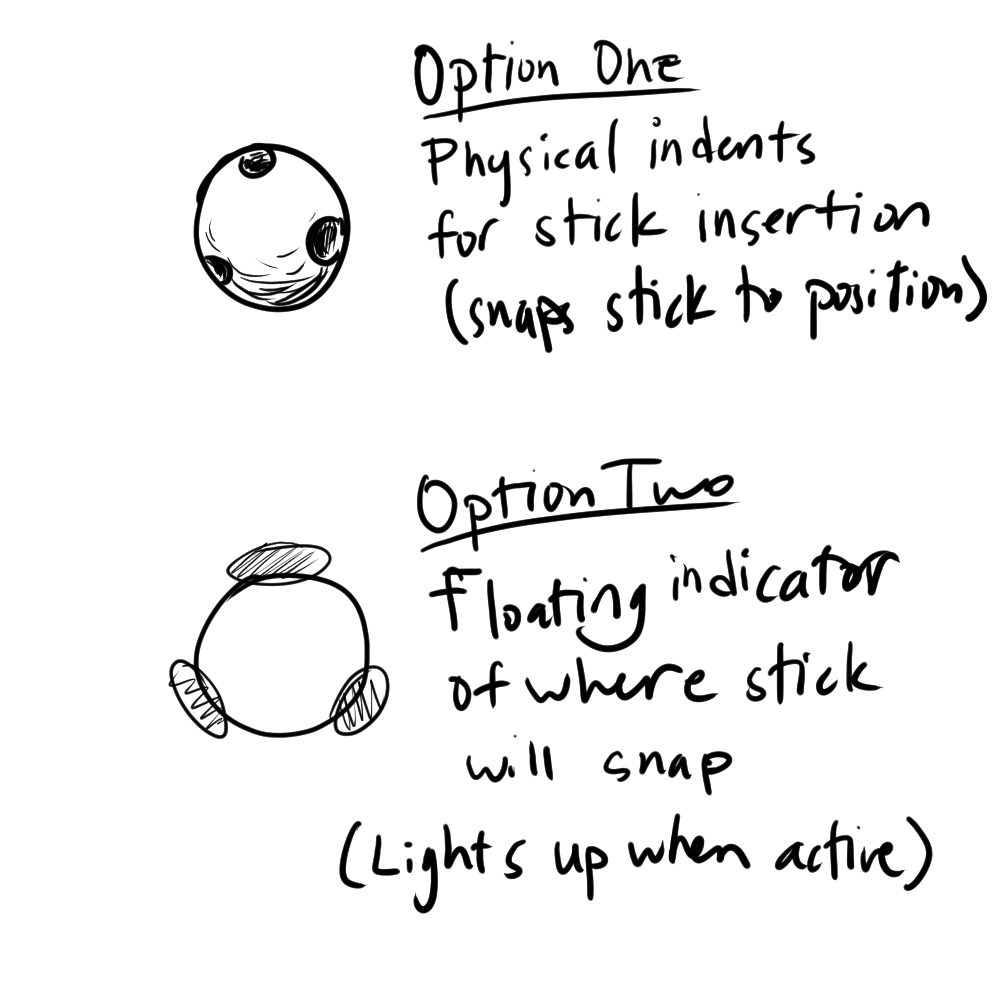 Option One
Physical indents
for stick insertion
(snaps stick to position)
Option Two
Floating indicator
of where stick
will snap
(Lights up when active)